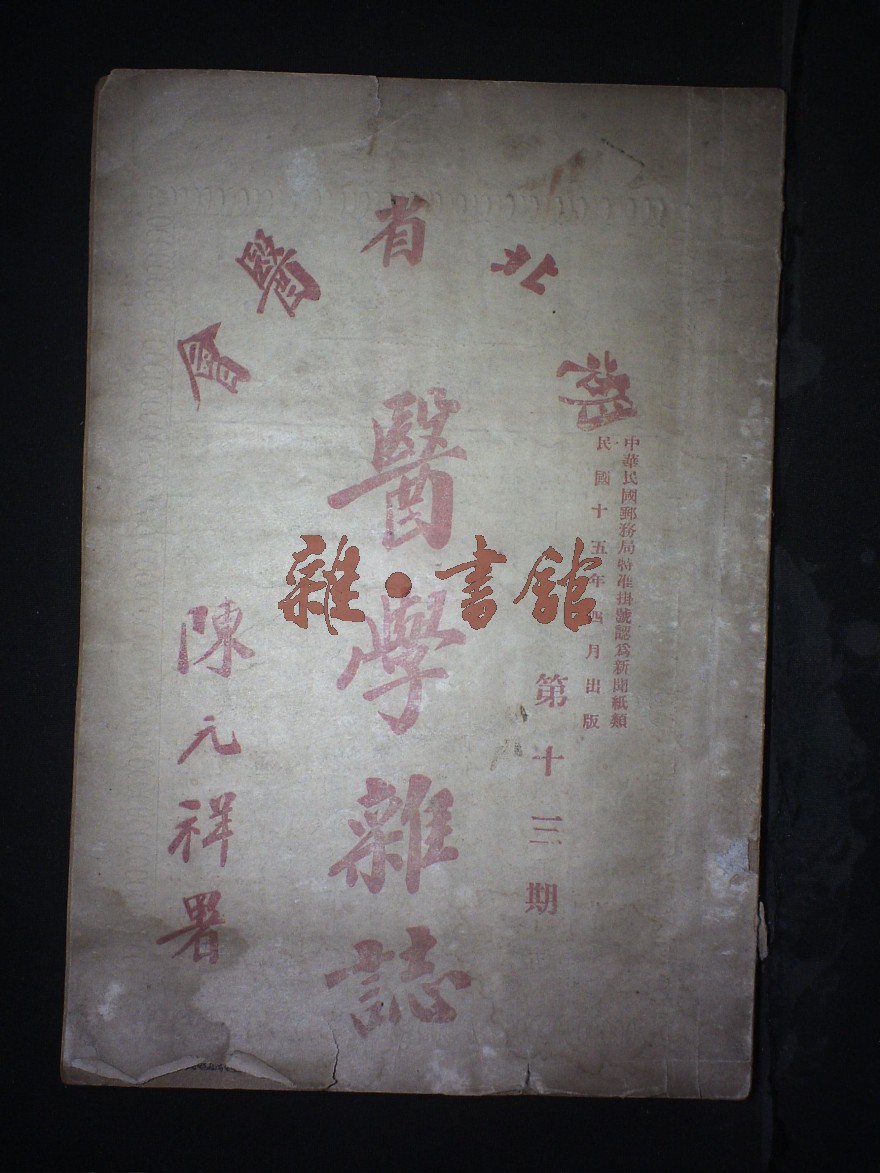 湖北省醫會
中華民國郵務局特准掛號認爲新聞紙類
民國十五年四月出版
第十三期
醫學雜誌
陳元祥署
雜·書館